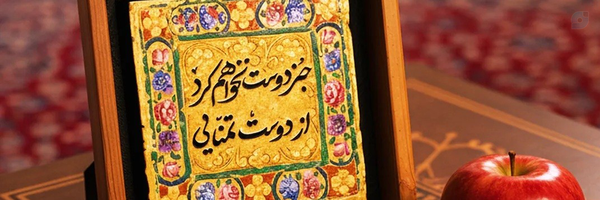 جز دوست نخواهم کرد
از دوست تمنایی